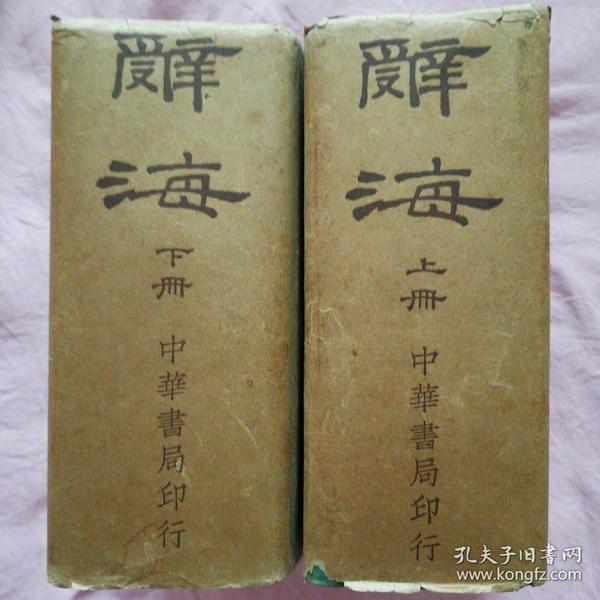 辭海
下冊
中華書局印行
辭海
上冊
中華書局印行
孔夫子旧书网
www.kongfz.com